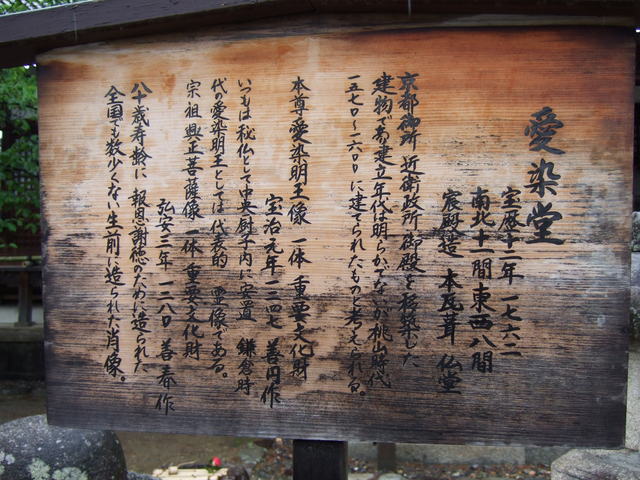 愛染堂
宝暦十二年 一七六二
南北十一間 東西八間
宸殿造 本瓦葺 仏堂
京都御所 近衛政所御殿を移築した
建物であり建立年代は明らかでないが桃山時代
一五七〇〜一六〇〇に建てられたものと考えられる。
本尊愛染明王像 一体 重要文化財
宝治元年 一二四七 善円作
いつもは秘仏として中央厨子内に安置 鎌倉時
代の愛染明王としては代表的 霊像である。
宗祖興正菩薩像 一体 重要文化財
弘安三年 一二八〇 善春作
八十歳寿齢に 報恩謝徳のために造られた
全国でも数少くない生前に造られた肖像。